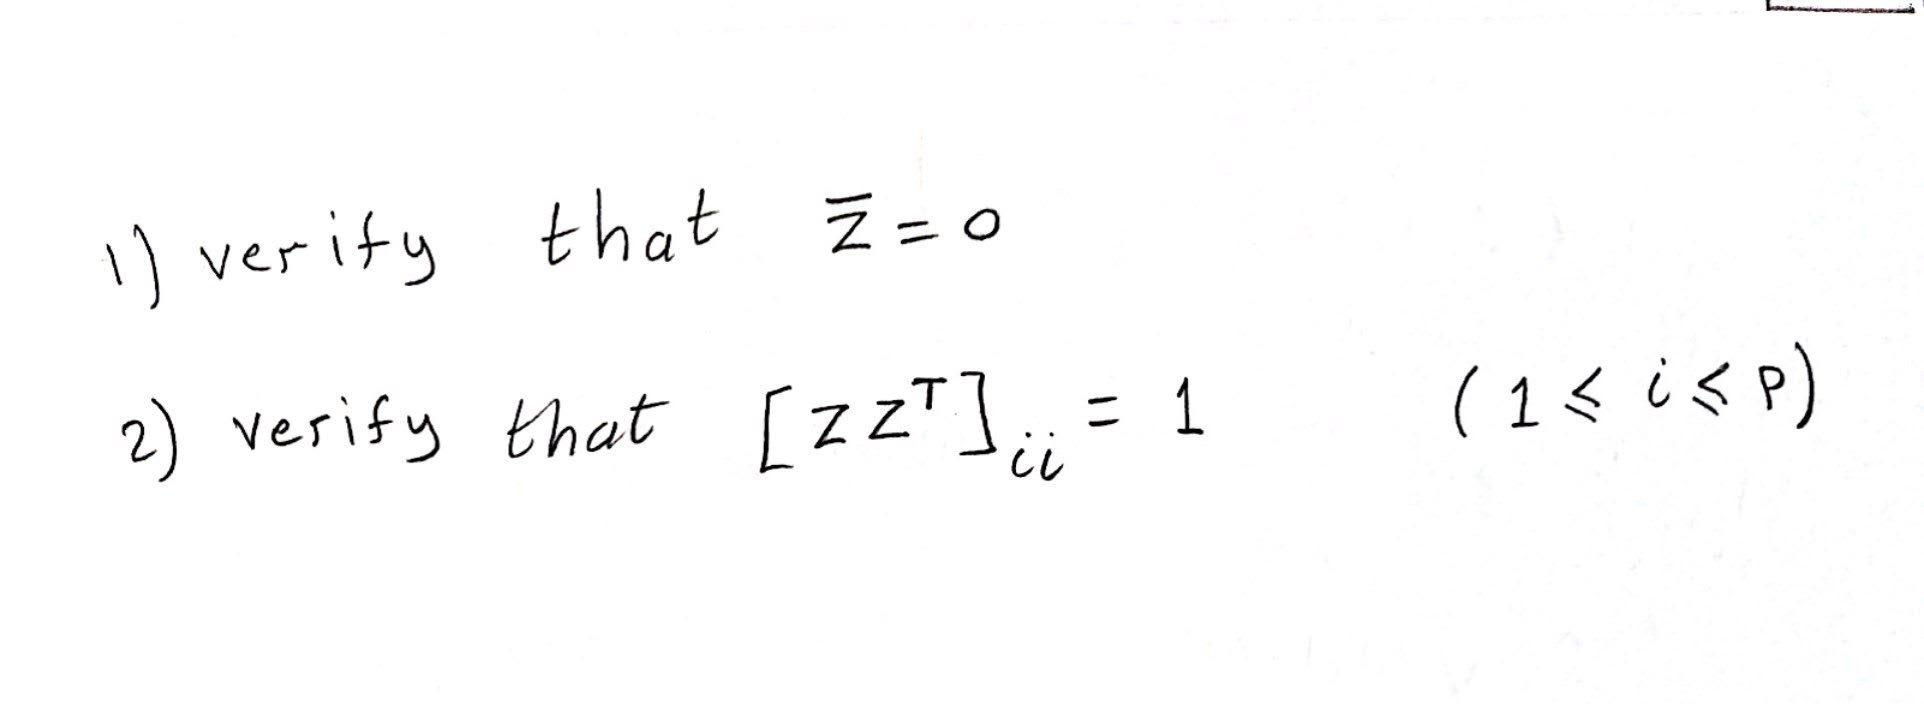 1) verify that z̅ = 0
2) verify that [ZZᵀ]ᵢᵢ = 1 (1 ⩽ i ⩽ P)